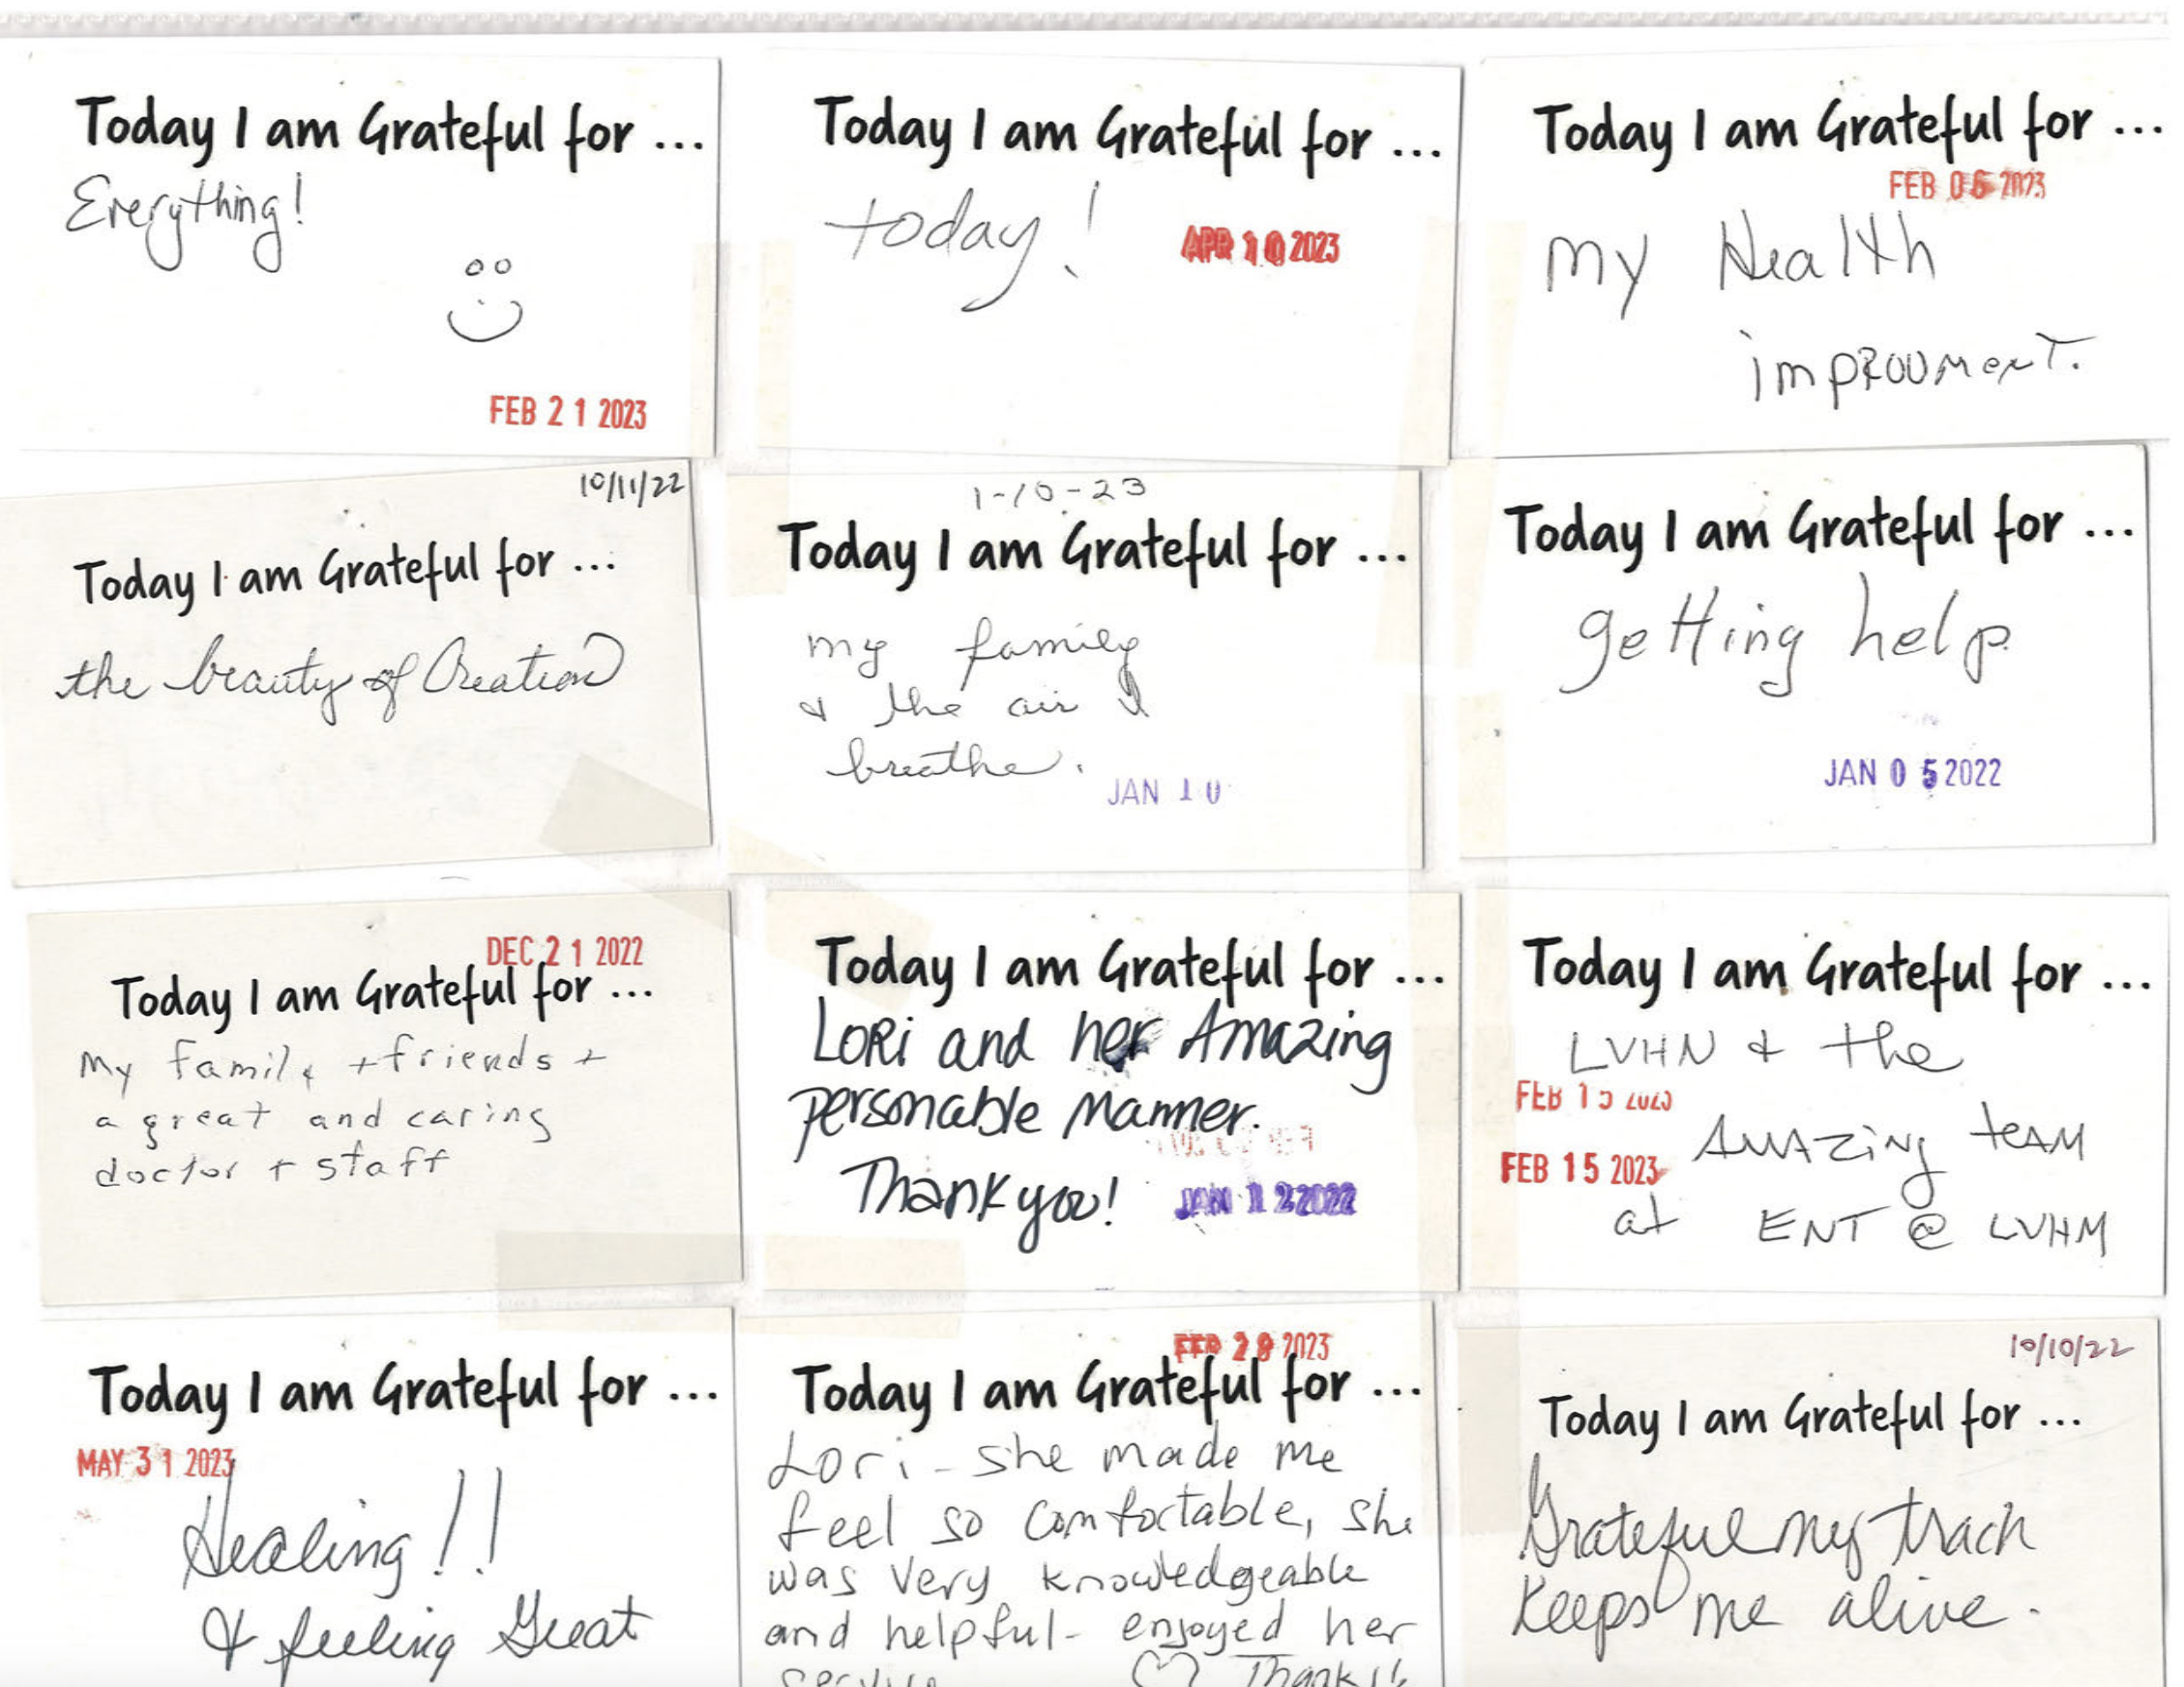 Today I am Grateful for ...
Everything!
FEB 21 2023
Today I am Grateful for ...
today!
APR 10 2023
Today I am Grateful for ...
FEB 06 2023
my Health
improvment.
10/11/22
Today I am Grateful for ...
the beauty of Creation
1-10-23
Today I am Grateful for ...
my family
& the air I
breathe.
JAN 10
Today I am Grateful for ...
getting help
JAN 05 2022
DEC 21 2022
Today I am Grateful for ...
my family + friends +
a great and caring
doctor + staff
Today I am Grateful for ...
Lori and her Amazing
personable manner.
Thank you!
JAN 12 2022
Today I am Grateful for ...
LVHN & the
FEB 15 2023
Amazing team
FEB 15 2023
at ENT @ LVHM
Today I am Grateful for ...
MAY 31 2023
Healing!!
& feeling Great
FEB 28 2023
Today I am Grateful for ...
Lori - she made me
feel so comfortable, she
was very knowledgeable
and helpful - enjoyed her
service
Thank
10/10/22
Today I am Grateful for ...
Grateful my trach
Keeps me alive.